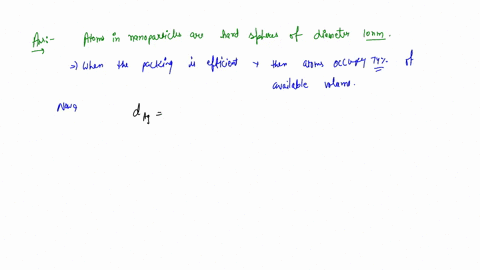 Ans:- Atoms in nanoparticles are hard spheres of diameter 10nm.
=) When the packing is efficient, then atoms occupy 74% of
available volume.
Now,
d Ag =